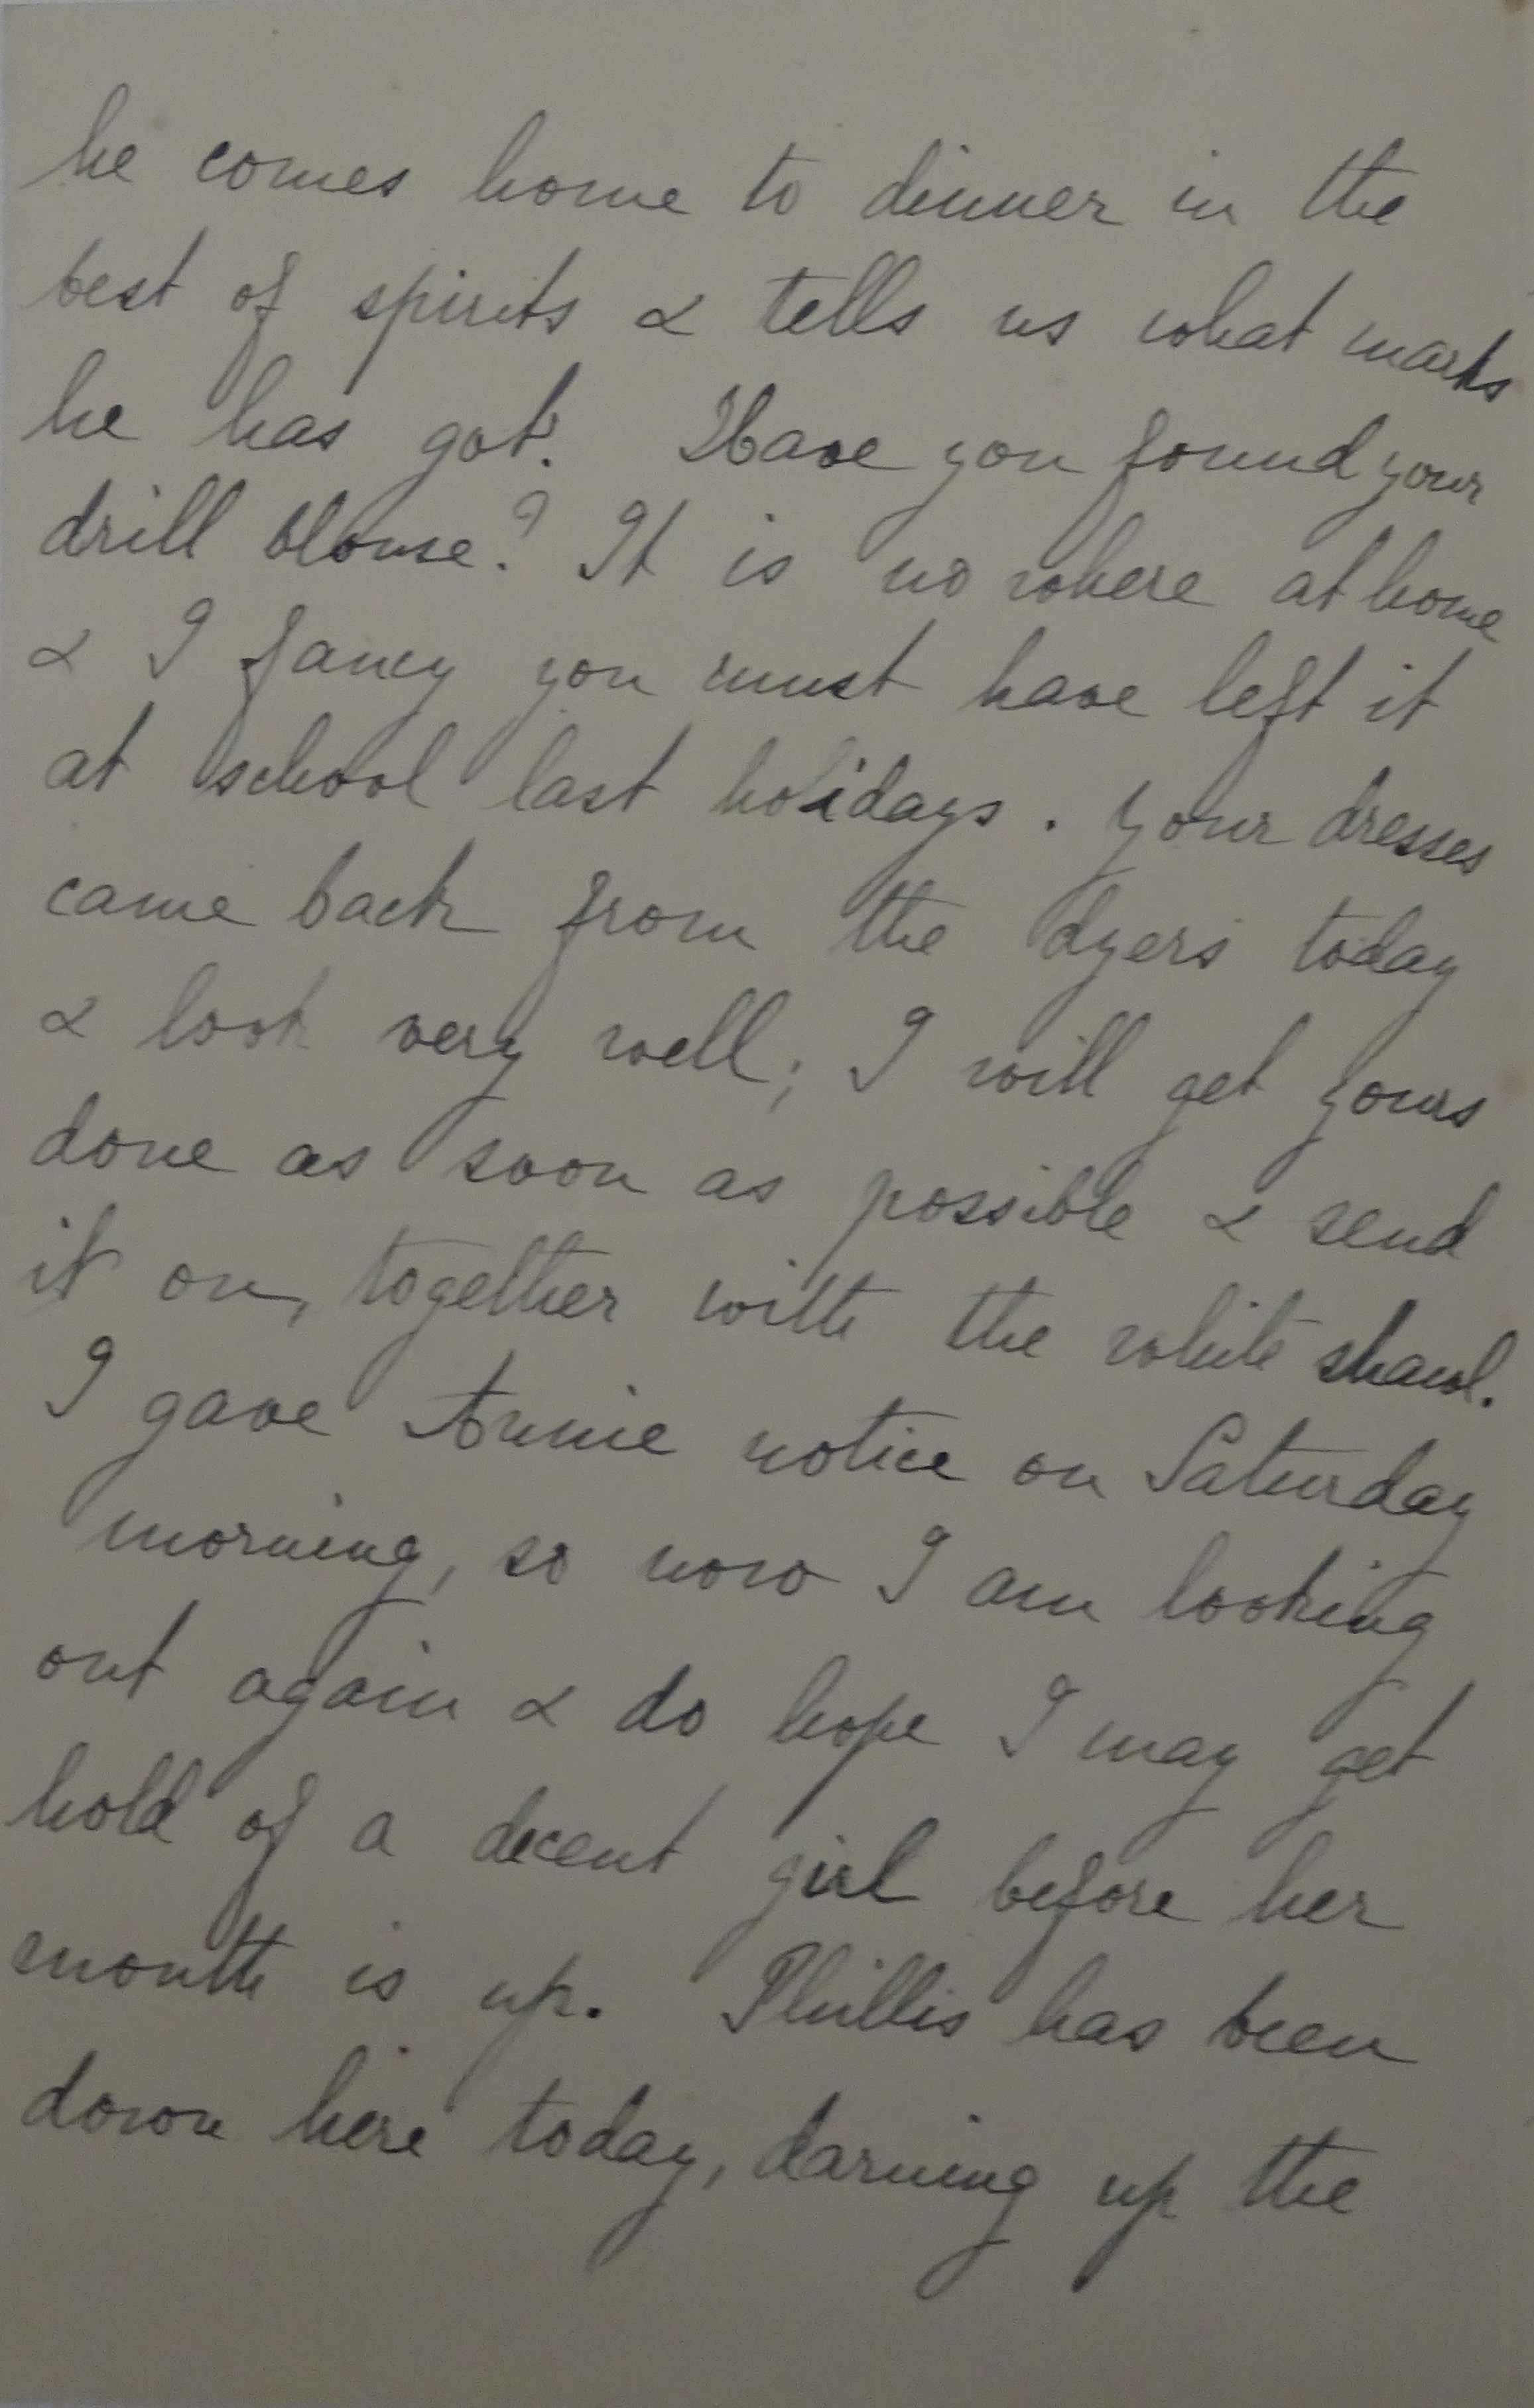 he comes home to dinner in the
best of spirits & tells us what marks
he has got. Have you found your
drill blouse? It is no where at home
& I fancy you must have left it
at school last holidays. Your dresses
came back from the dyers today
& look very well; I will get yours
done as soon as possible & send
it on, together with the white shawl.
I gave Annie notice on Saturday
morning, so now I am looking
out again & do hope I may get
hold of a decent girl before her
month is up. Phillis has been
down here today, darning up the